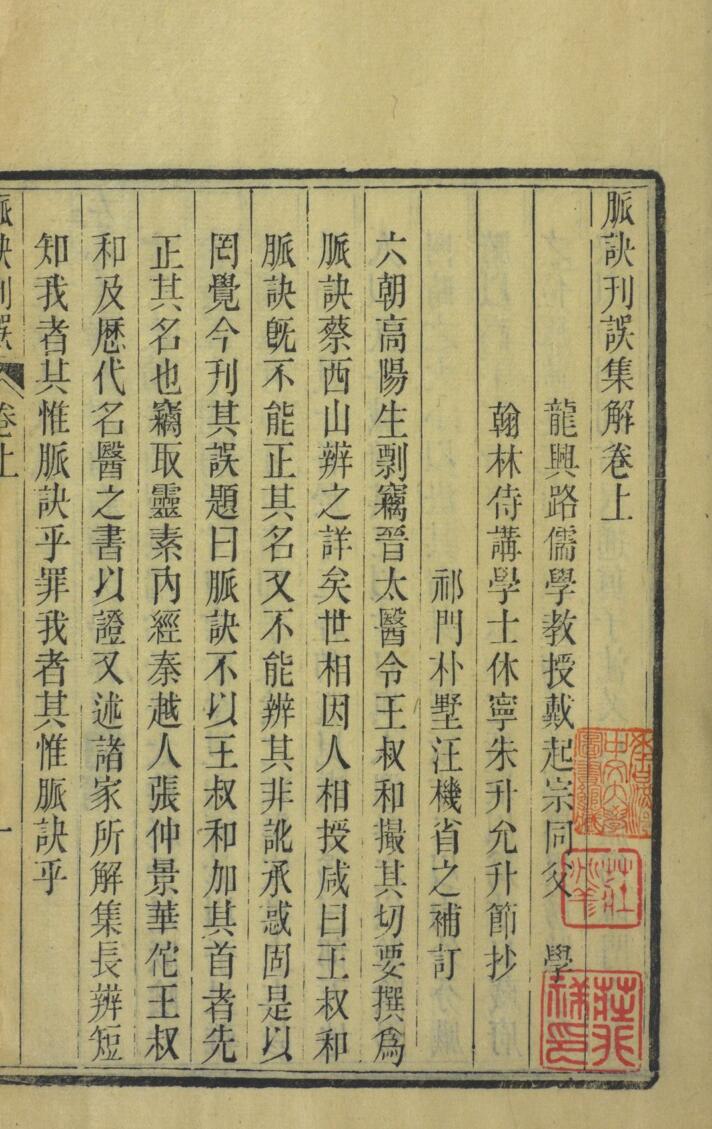 脈訣刊誤集解卷上
龍興路儒學教授戴起宗同父　學
翰林侍講學士休寧朱升允升節抄
祁門朴墅汪機省之補訂
六朝高陽生剽竊晉太醫令王叔和撮其切要撰爲
脈訣蔡西山辨之詳矣世相因人相授咸曰王叔和
脈訣旣不能正其名又不能辨其非訛承惑固是以
罔覺今刊其誤題曰脈訣不以王叔和加其首者先
正其名也竊取靈素內經秦越人張仲景華佗王叔
和及歷代名醫之書以證又述諸家所解集長辨短
知我者其惟脈訣乎罪我者其惟脈訣乎
脈訣刊誤　卷上　一